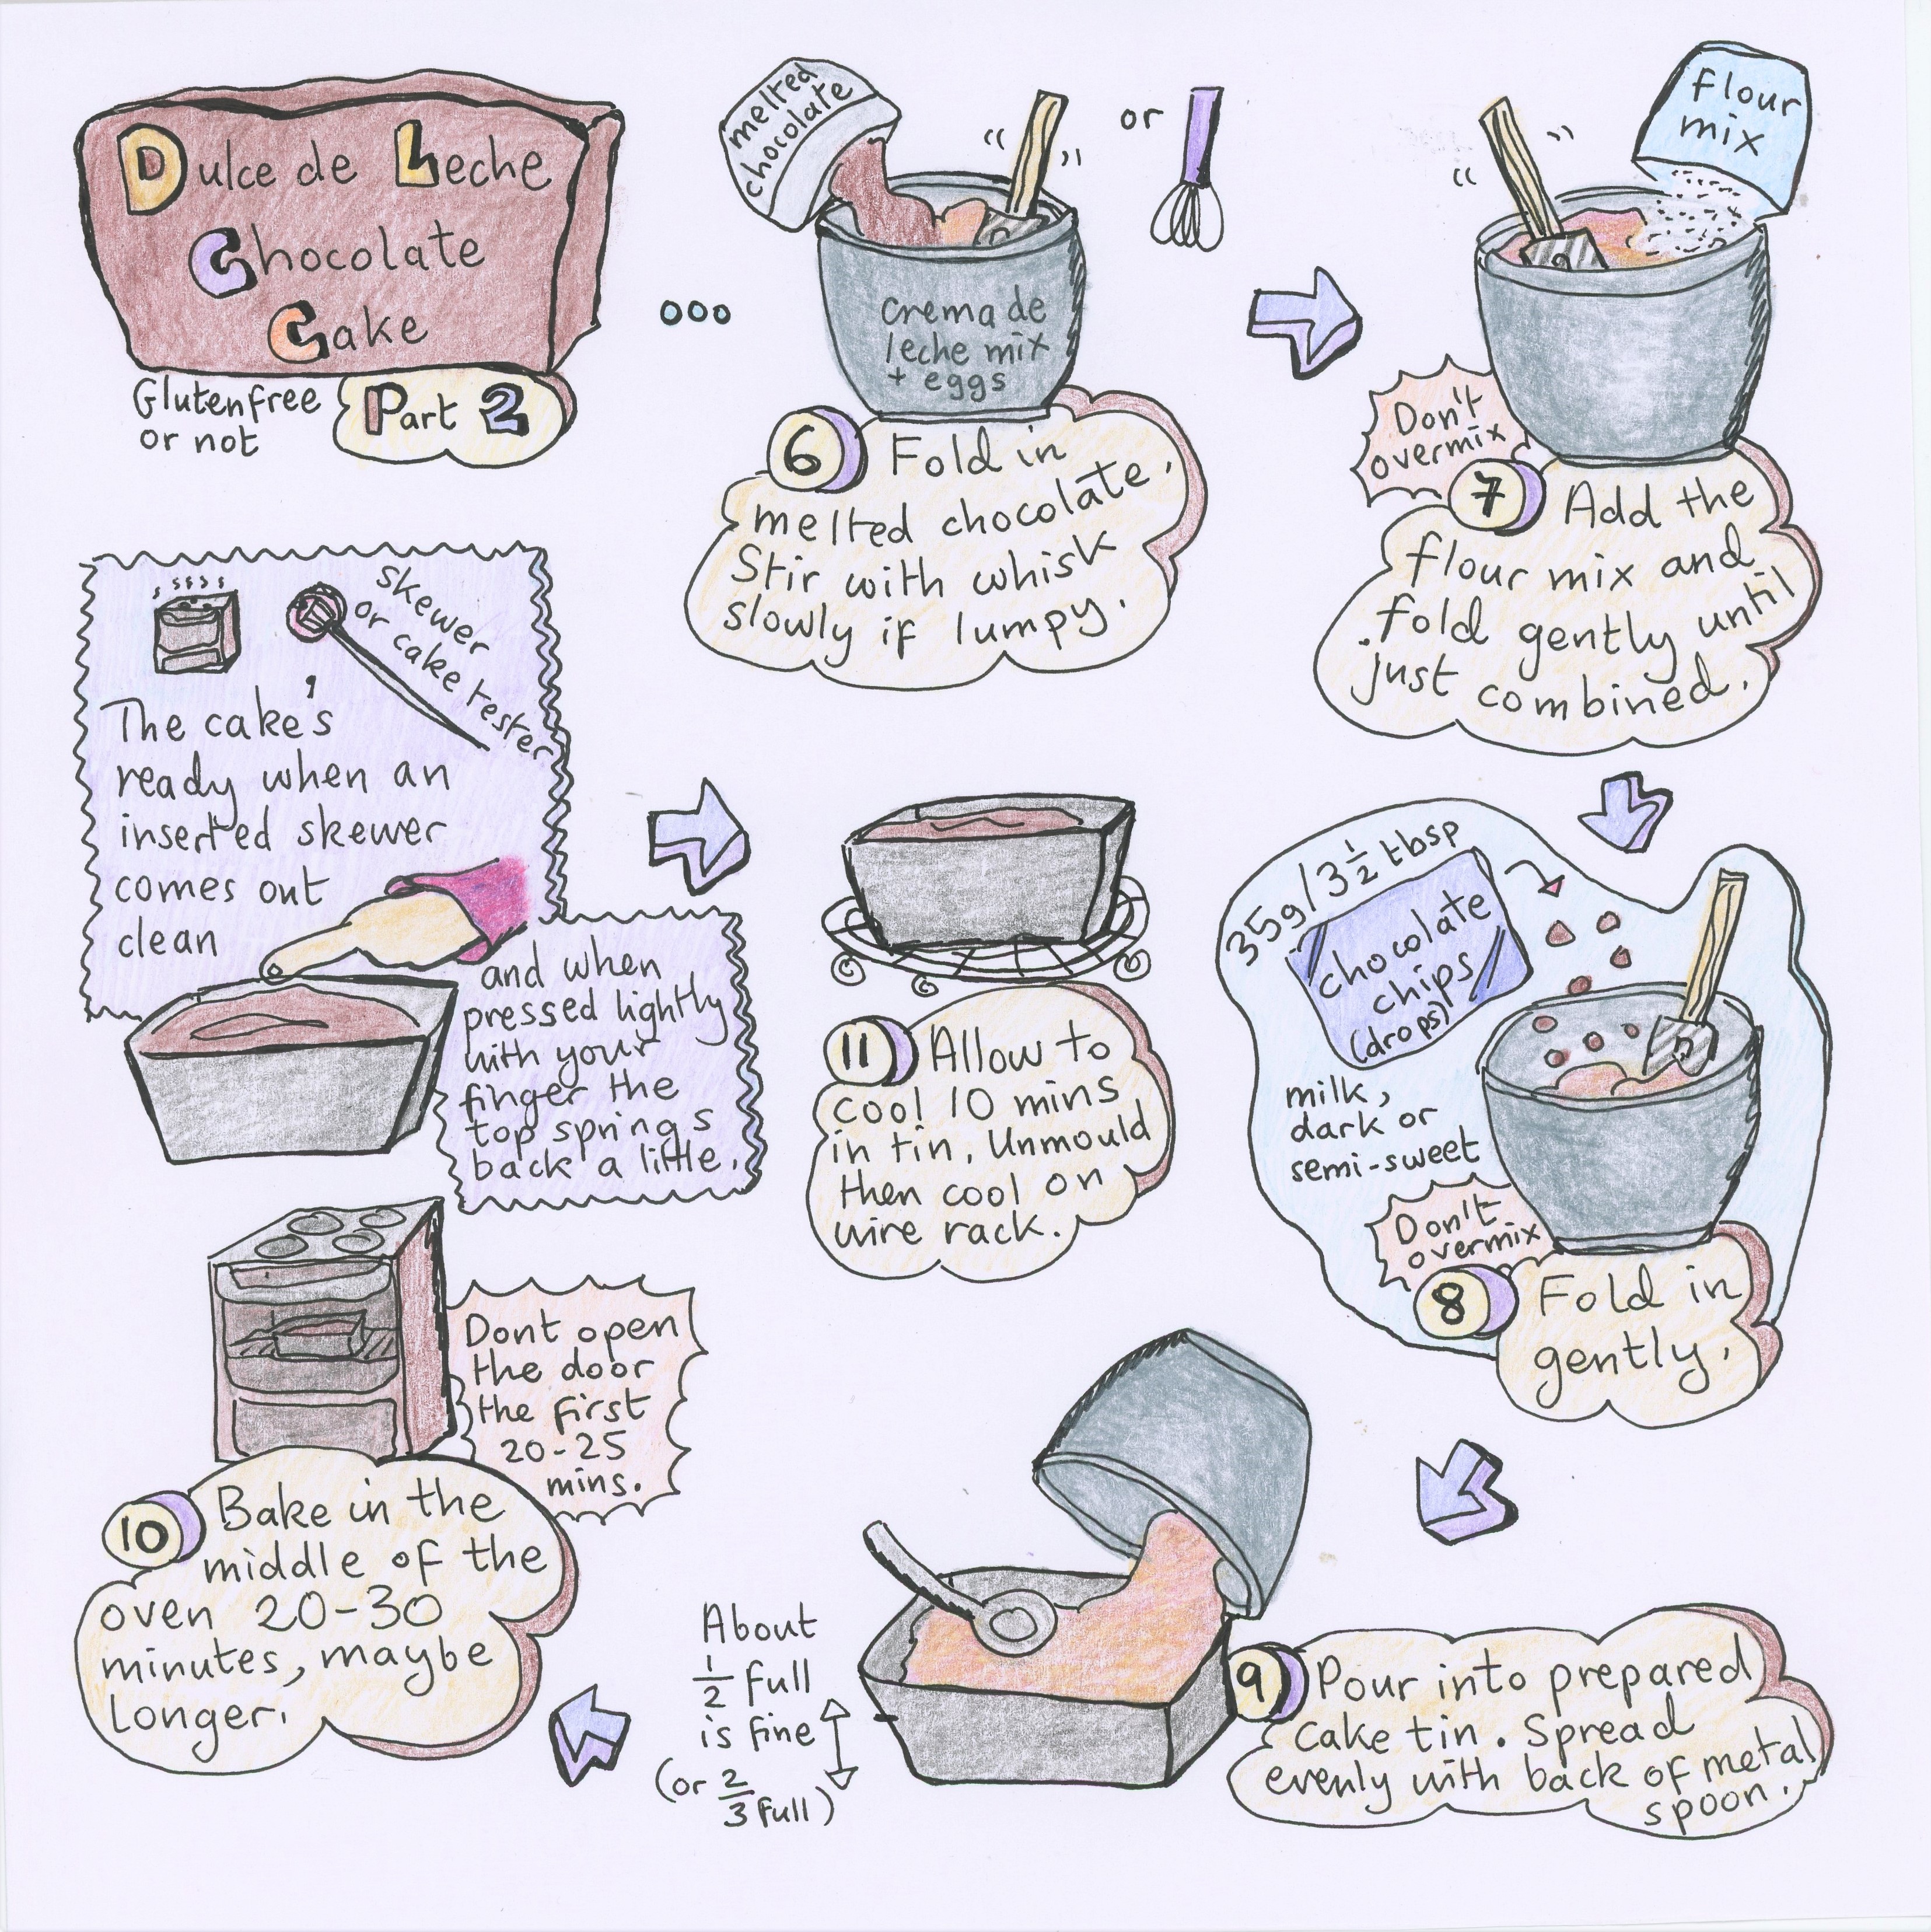 Dulce de Leche
Chocolate
Cake
Glutenfree
or not
Part 2
melted
chocolate
or
Crema de
leche mix
+ eggs
6 Fold in
melted chocolate.
Stir with whisk
slowly if lumpy.
flour
mix
Don't
overmix
7 Add the
flour mix and
fold gently until
just combined.
35g/3 1/2 tbsp
chocolate
chips
(drops)
milk,
dark or
semi-sweet
Don't
overmix
8 Fold in
gently.
9 Pour into prepared
cake tin. Spread
evenly with back of metal
spoon.
About
1/2 full
is fine
(or 2/3 full)
10 Bake in the
middle of the
oven 20-30
minutes, maybe
longer.
Dont open
the door
the first
20-25
mins.
skewer
or cake tester
The cake's
ready when an
inserted skewer
comes out
clean
and when
pressed lightly
with your
finger the
top springs
back a little.
11 Allow to
cool 10 mins
in tin. Unmould
then cool on
wire rack.